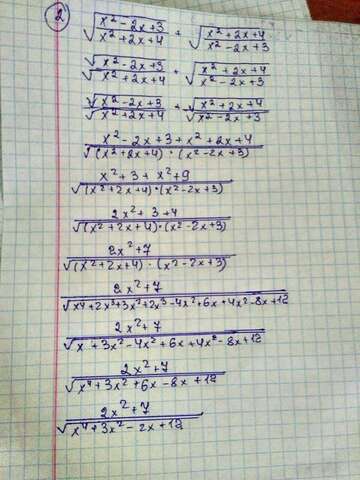 2
√(x²-2x+3)/(x²+2x+4) + √(x²+2x+4)/(x²-2x+3)
√x²-2x+3/√x²+2x+4 + √(x²+2x+4)/(x²-2x+3)
√x²-2x+3/√x²+2x+4 + √x²+2x+4/√x²-2x+3
x²-2x+3+x²+2x+4/√(x²+2x+4)·(x²-2x+3)
x²+3+x²+9/√(x²+2x+4)·(x²-2x+3)
2x²+3+4/√(x²+2x+4)·(x²-2x+3)
2x²+7/√(x²+2x+4)·(x²-2x+3)
2x²+7/√x⁴+2x³+3x²+2x³-4x²+6x+4x²-8x+12
2x²+7/√x+3x²-4x²+6x+4x²-8x+12
2x²+7/√x⁴+3x²+6x-8x+12
2x²+7/√x⁴+3x²-2x+12